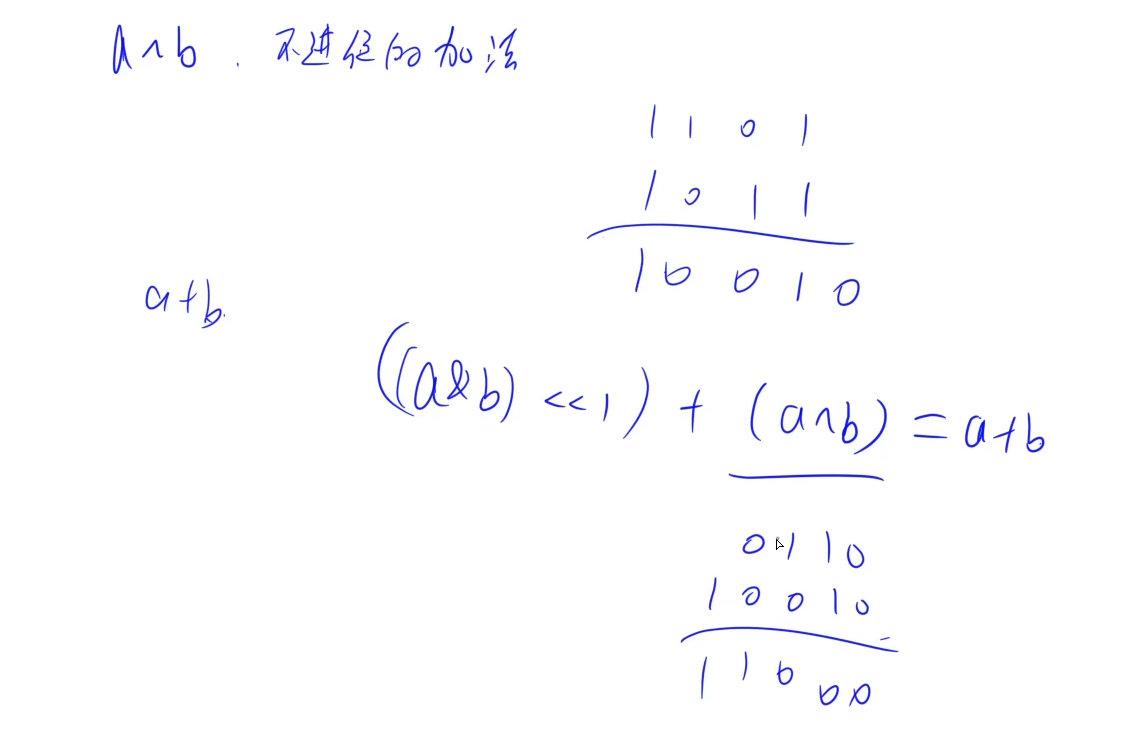 a^b . 不进位的加法
1 1 0 1
1 0 1 1
1 0 0 1 0
a+b.
((a&b) <<1) + (a^b) = a+b
0 1 1 0
1 0 0 1 0
1 1 0 0 0